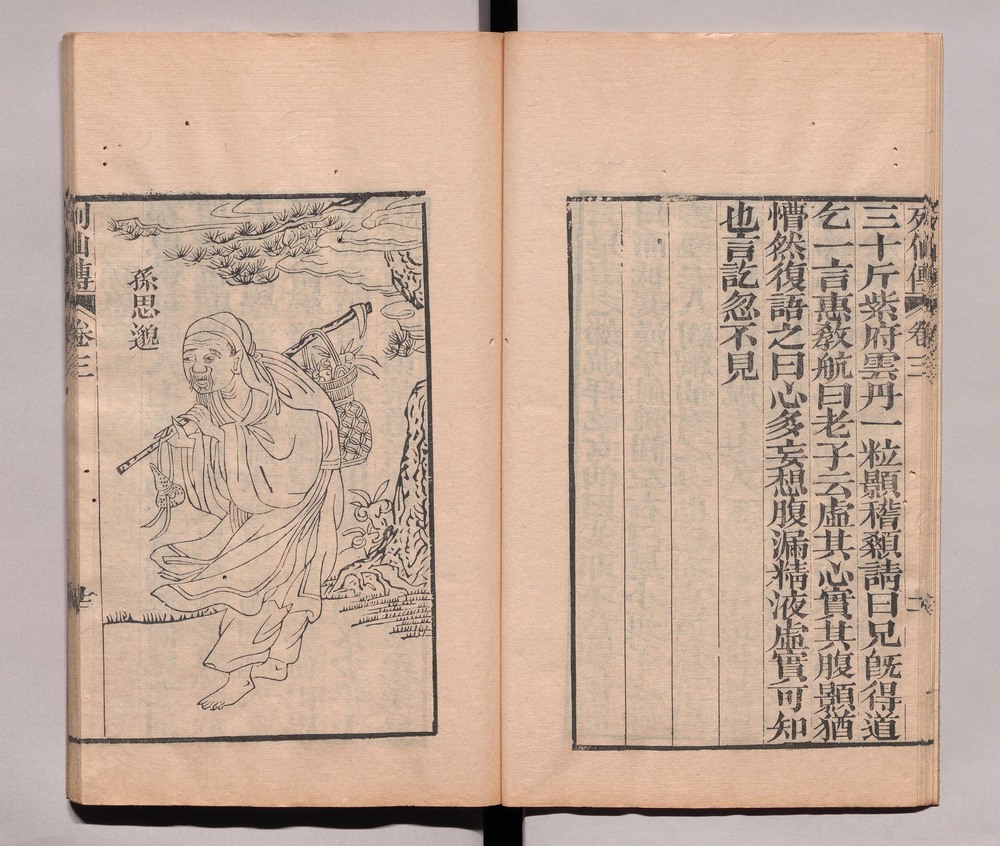 列仙傳 卷三
三十斤紫府雲丹一粒顯稽顙請曰兄旣得道
乞一言惠敎航曰老子云虛其心實其腹顯猶
懵然復語之曰心多妄想腹漏精液虛實可知
也言訖忽不見
孫思邈
列仙傳 卷三